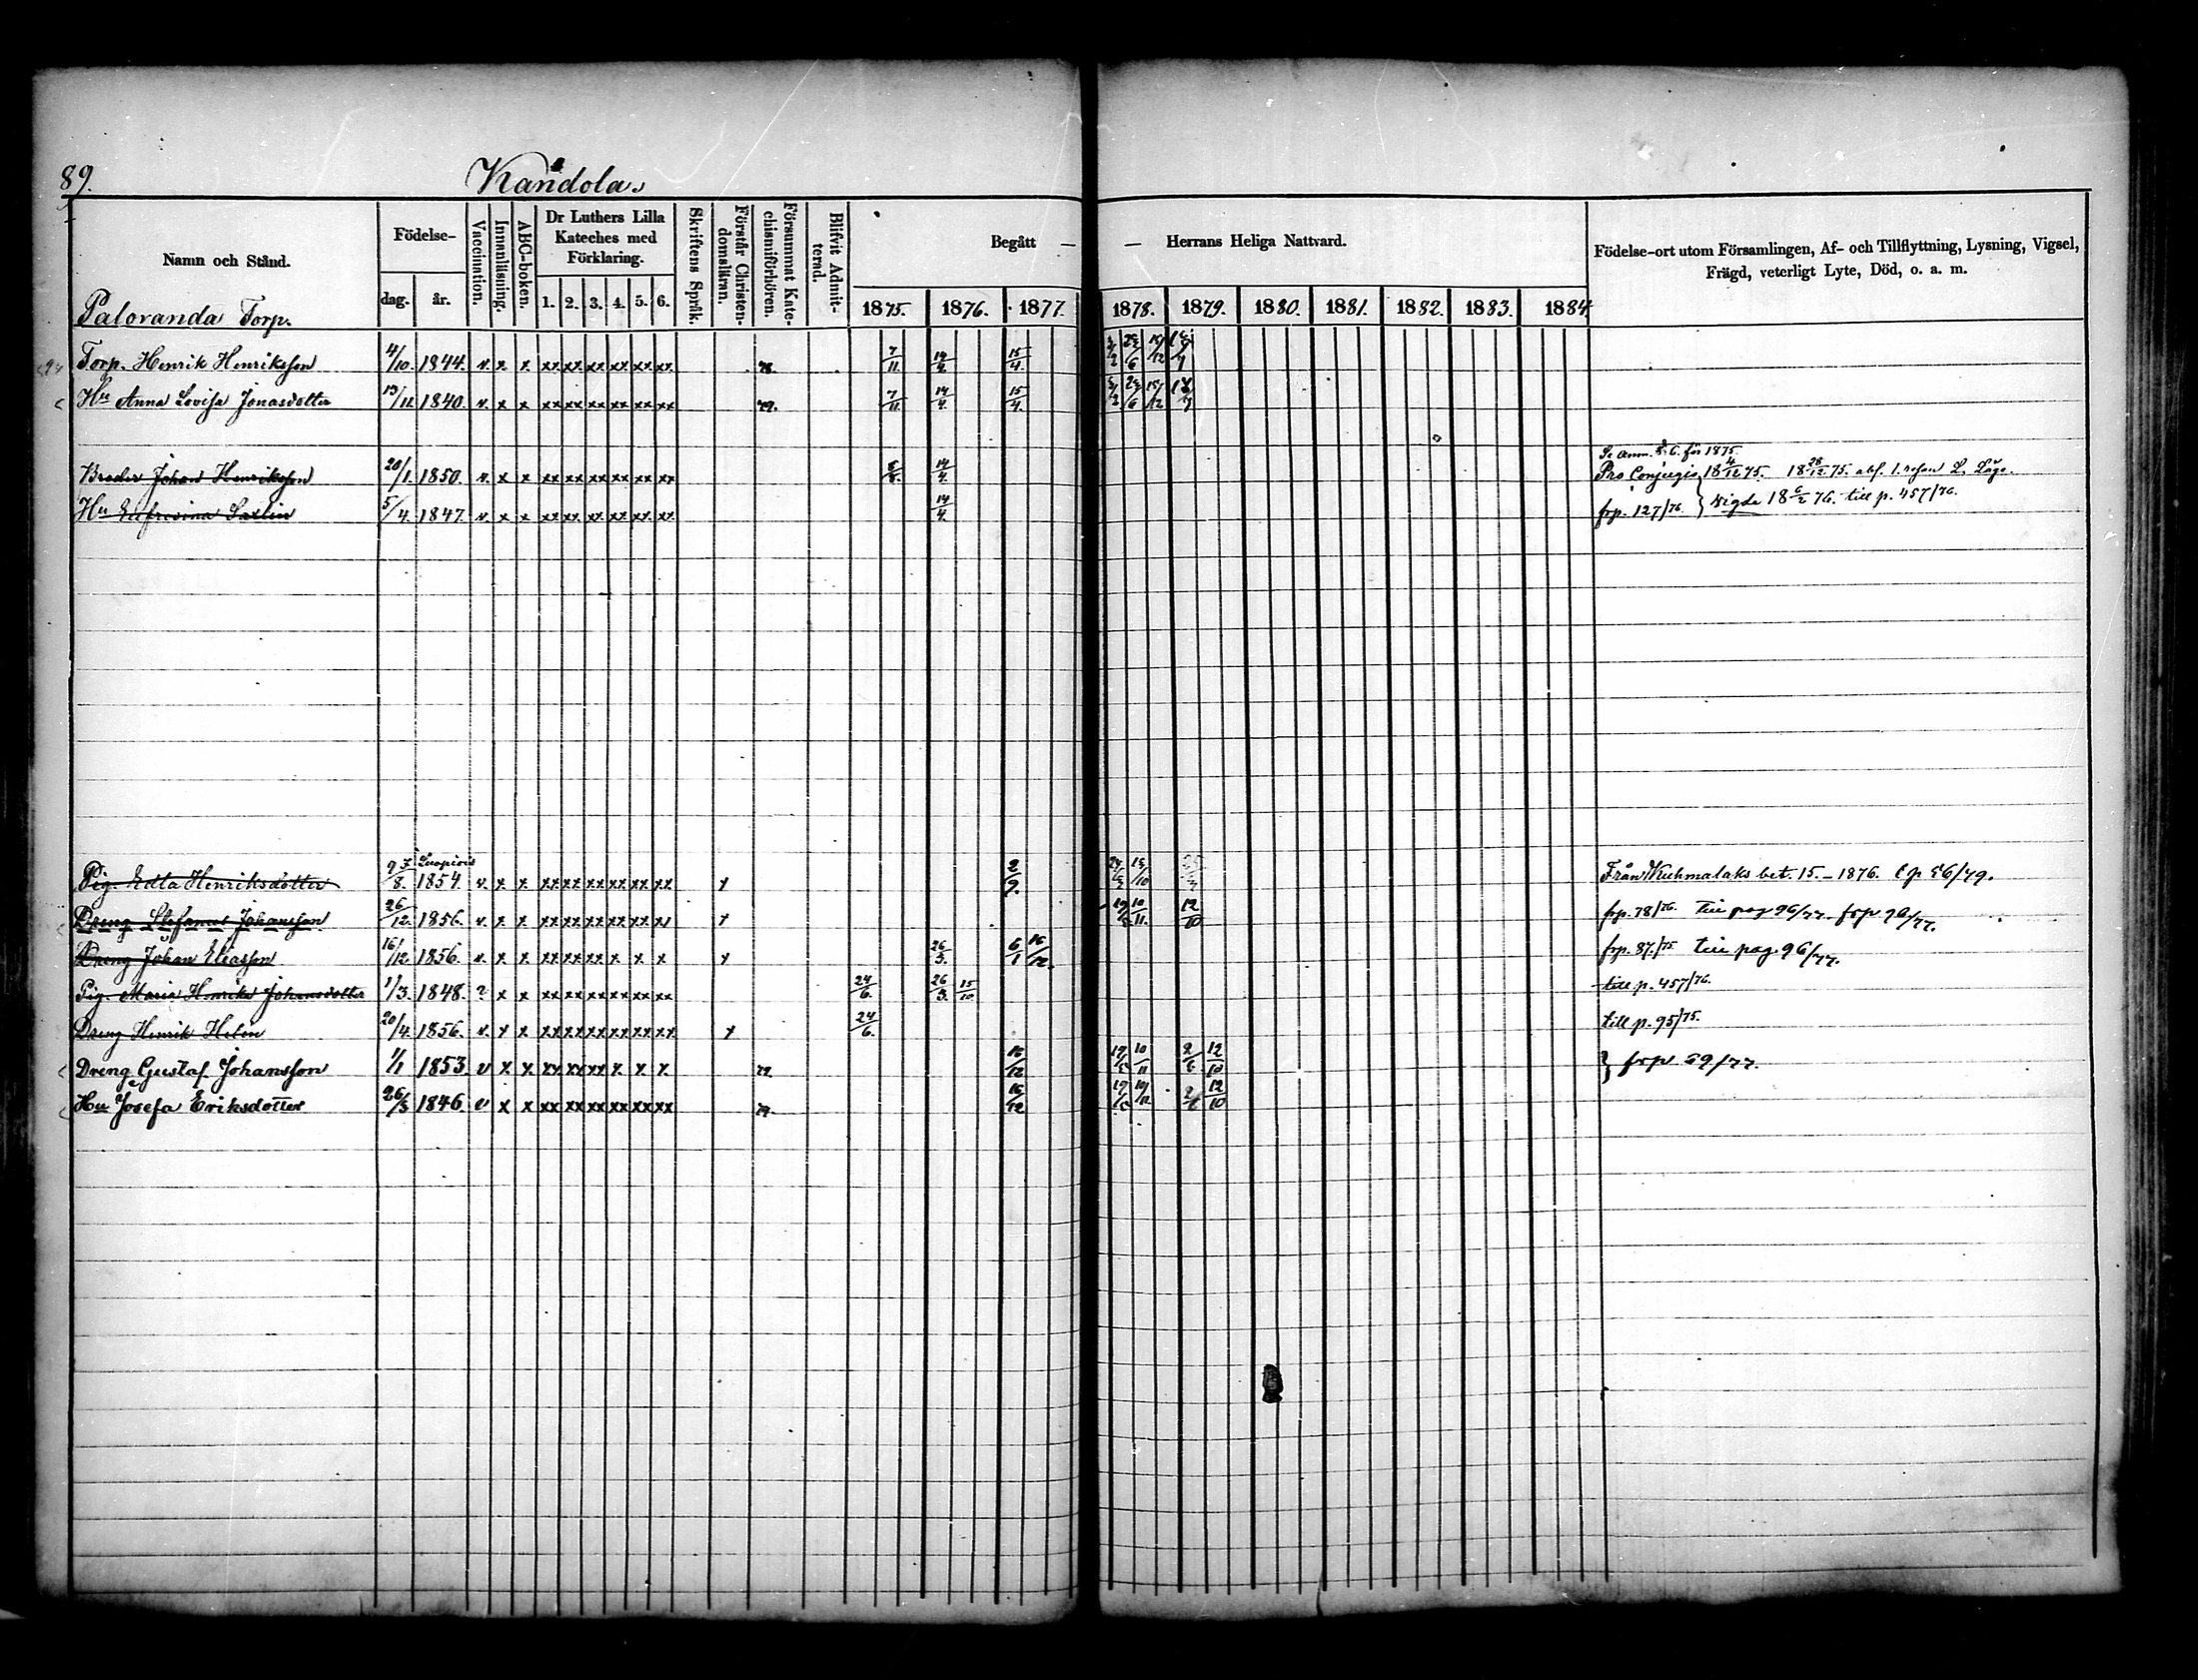 89.
Kandola.
Namn och Stånd.
Födelse-
dag. år.
Vaccination.
Innanläsning.
ABC-boken.
Dr Luthers Lilla
Kateches med
Förklaring.
1. 2. 3. 4. 5. 6.
Skriftens Språk.
Förstår Christen-
domsläran.
Försummat Kate-
chismiförhören.
Blifvit Admit-
terad.
Begått — — Herrans Heliga Nattvard.
1875. 1876. 1877. 1878. 1879. 1880. 1881. 1882. 1883. 1884.
Födelse-ort utom Församlingen, Af- och Tillflyttning, Lysning, Vigsel,
Frägd, veterligt Lyte, Död, o. a. m.
Paloranda Torp.
Torp. Henrik Henriksson 4/10. 1844. v. x x xx xx xx xx xx xx 7/11. 14/4. 15/4.
Hu Anna Lovisa Jonasdotter 13/11. 1840. v. x x xx xx xx xx xx xx 7/11. 14/4. 15/4.
Se anm. 6. för 1875.
Broder Johan Henriksson 20/1. 1850. v. x x xx xx xx xx xx xx 14/4. Pro Conjugio 18 4/12 75. 18 28/12 75.
Hu Eufrosina Saxlin 5/4. 1847. v. x x xx xx xx xx xx xx 14/4. frp. 127/76. } Vigde 18 6/2 76. till p. 457/76.
Pig. Edla Henriksdotter 8. 1854. v. x x xx xx xx xx xx xx x 2/9. Från Kuhmalaks bet. 15. - 1876.
Dreng Stefanus Johansson 26/12. 1856. v. x x xx xx xx xx xx xx x 12/10 frp. 78/76. till pag 96/77.
Dreng Johan Eliasson 16/12. 1856. v. x x xx xx xx x x x x 26/3. 6/1 16/12. frp. 87./75 till pag. 96/77.
Pig. Maria Henrika Johansdotter 1/3. 1848. ? x x xx xx xx xx xx xx 24/6. 26/3. 15/10 till p. 457/76.
Dreng Henrik Helen 20/4. 1856. v. x x xx xx xx xx xx xx x 24/6. till p. 95/75.
Dreng Gustaf Johansson 1/1 1853. v x x xx xx xx x. x x. 16/12 10/11 12/10 } frp. 59/77.
Hu Josefa Eriksdotter 26/3 1846. v x x xx xx xx xx xx xx 16/12 12/10